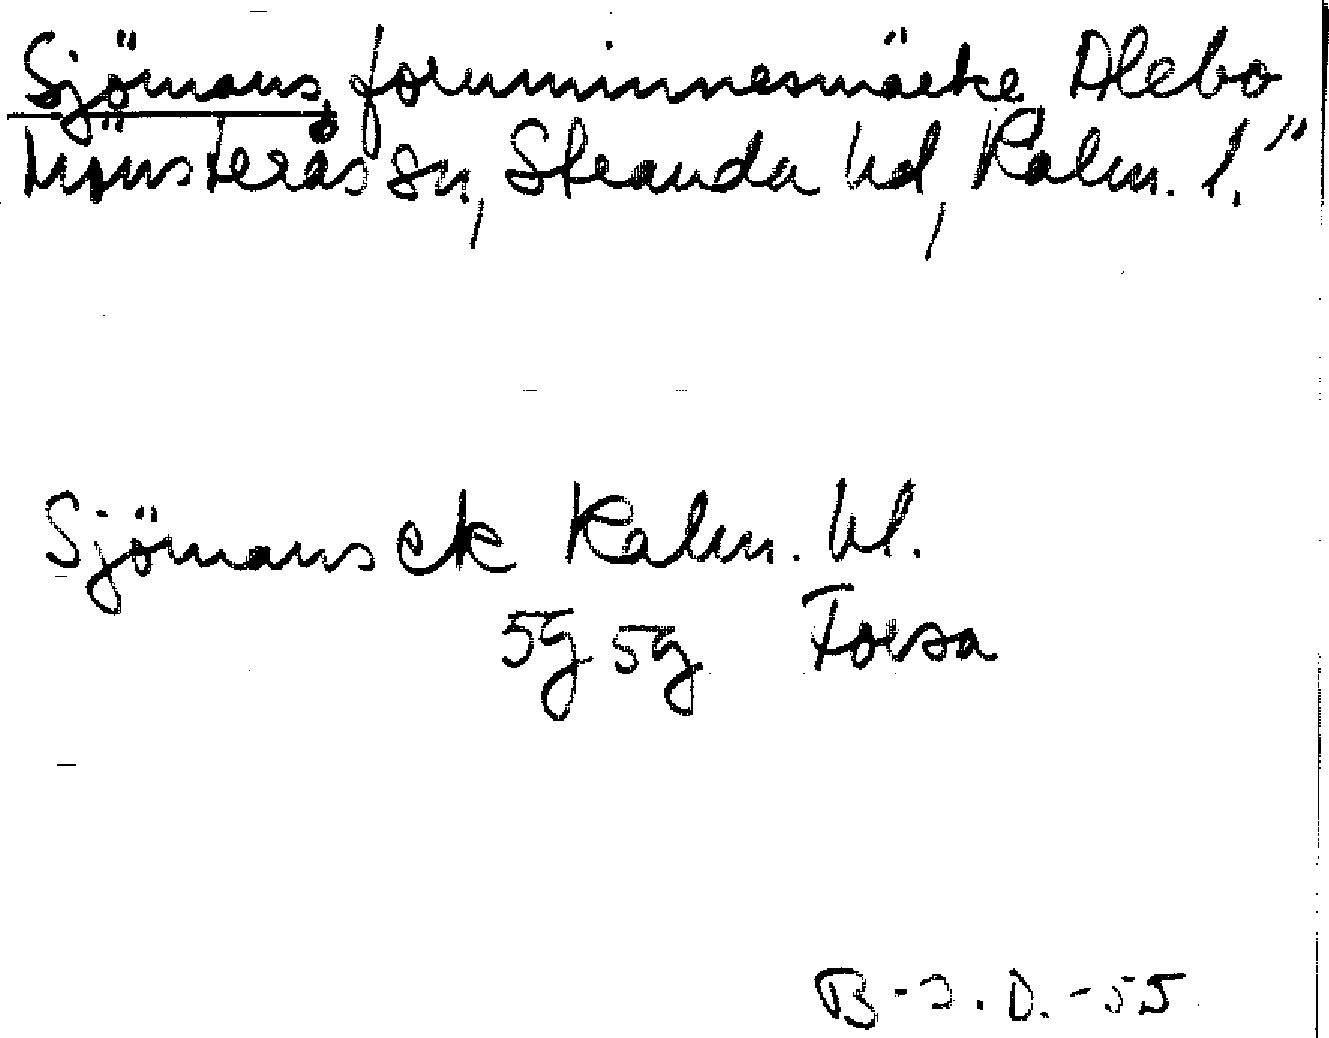 Sjömans, fornminnesmärke, Alebo
Mönsterås sn, Stranda hd, Kalm. l."
Sjömans ek Kalm. bl.
5g 5g Forsa
B-I.D.-55